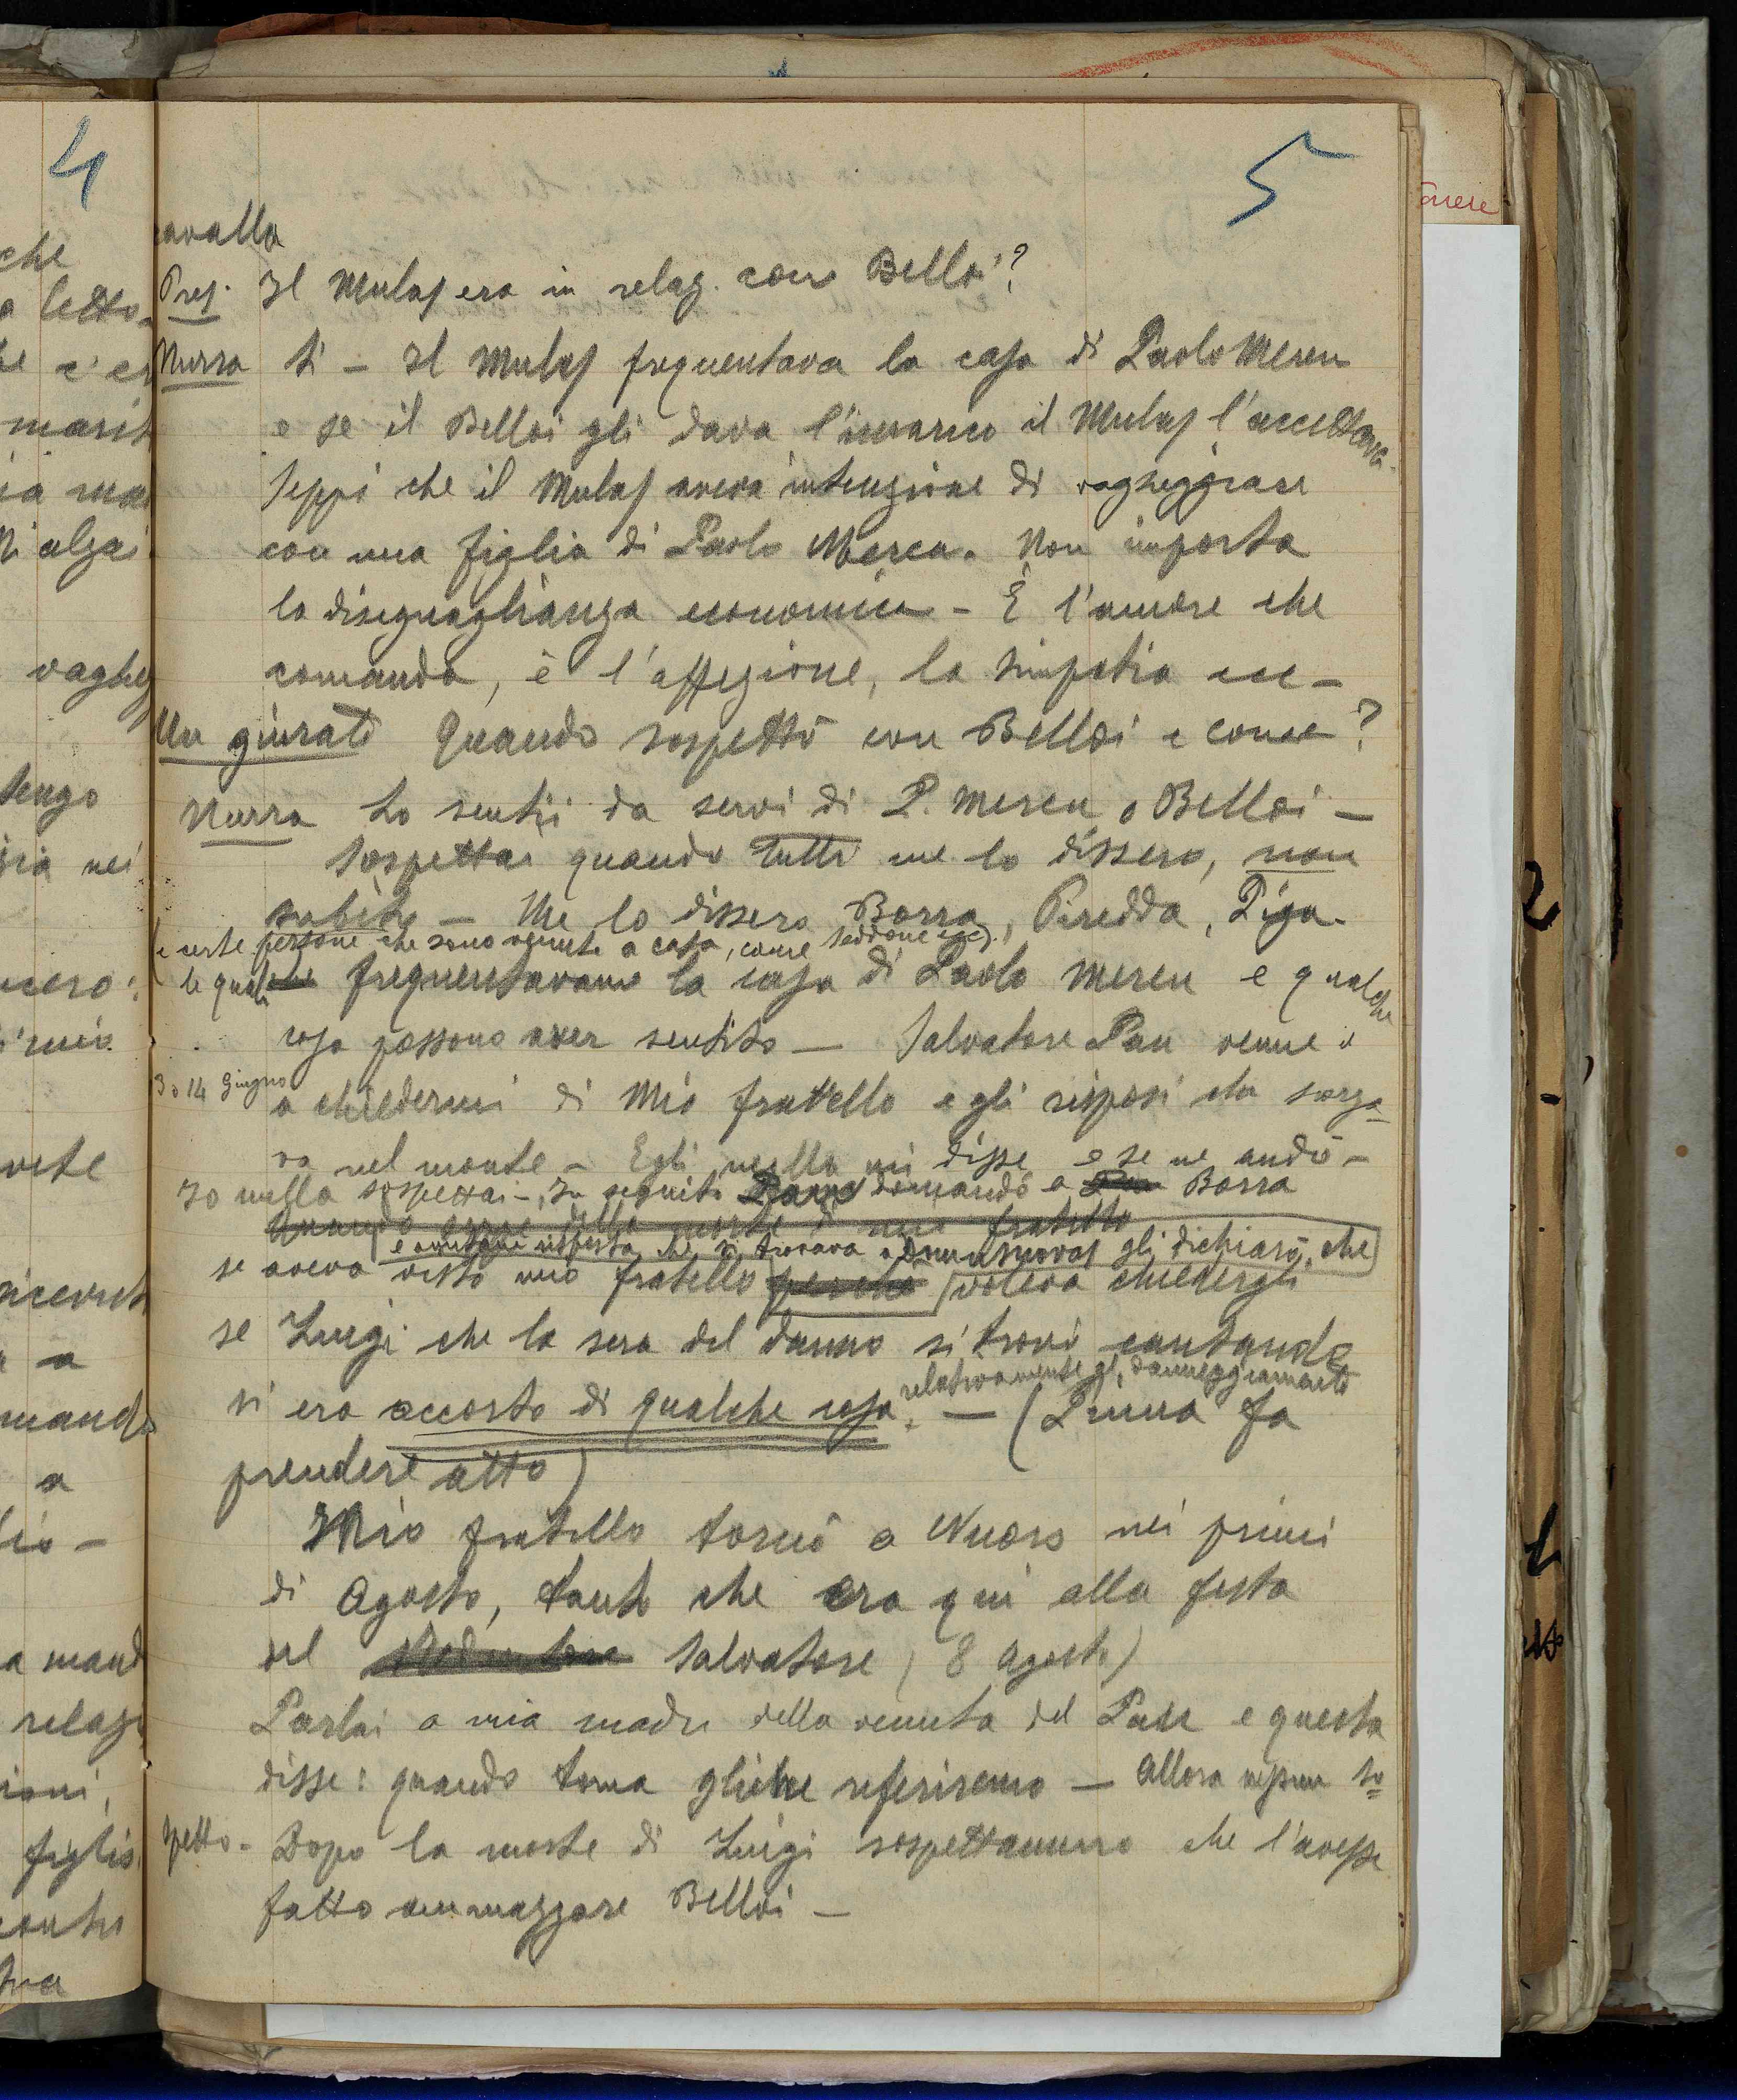 4
che
letto
marit
alzai
vaghe
tengo
nei
mio
ricevut
a
mand
a
a mand
relaz
figlio
5
avallo
Pres. Il Mulas era in relaz. con Belloi?
Murra Sì - Il Mulas frequentava la casa di Paolo Mereu
e se il Belloi gli dava l'incarico il Mulas l'accettava.
Seppi che il Mulas aveva intenzione di vagheggiare
con una figlia di Paolo Mereu. Non importa
la diseguaglianza economica - È l'amore che
comanda, è l'affezione, la simpatia ecc -
Un giurato Quando sospettò con Belloi e come?
Murra Lo sentii da servi di P. Mereu e Belloi -
Sospettai quando tutti me lo dissero, non
subito - Me lo dissero Borra, Piredda, Piga.
e certe persone che sono venute a casa, come Seddone ecc.,
le quali che frequentavano la casa di Paolo Mereu e qualche
cosa possono aver sentito - Salvatore Pau venne il
3 o 14 Giugno a chiedermi di Mio fratello e gli risposi che sorza-
va nel monte - Egli nulla mi disse e se ne andò -
Io nulla sospettai -, In seguito domandò a Borra
mio fratello
e avutane risposta che si trovava gli dichiarò, che
se aveva visto mio fratello perché voleva chiedergli
se Luigi che la sera del danno si trovò cantando
relativamente al danneggiamento
si era accorto di qualche cosa. - (Pinna fa
prendere atto)
Mio fratello tornò a Nuoro nei primi
di Agosto, tanto che era qui alla festa
del Redentore Salvatore (8 agosto)
Parlai a mia madre della venuta del Pau e questa
disse: quando torna gliene riferiremo - Allora nessun so=
spetto - Dopo la morte di Luigi sospettammo che l'avesse
fatto ammazzare Belloi -